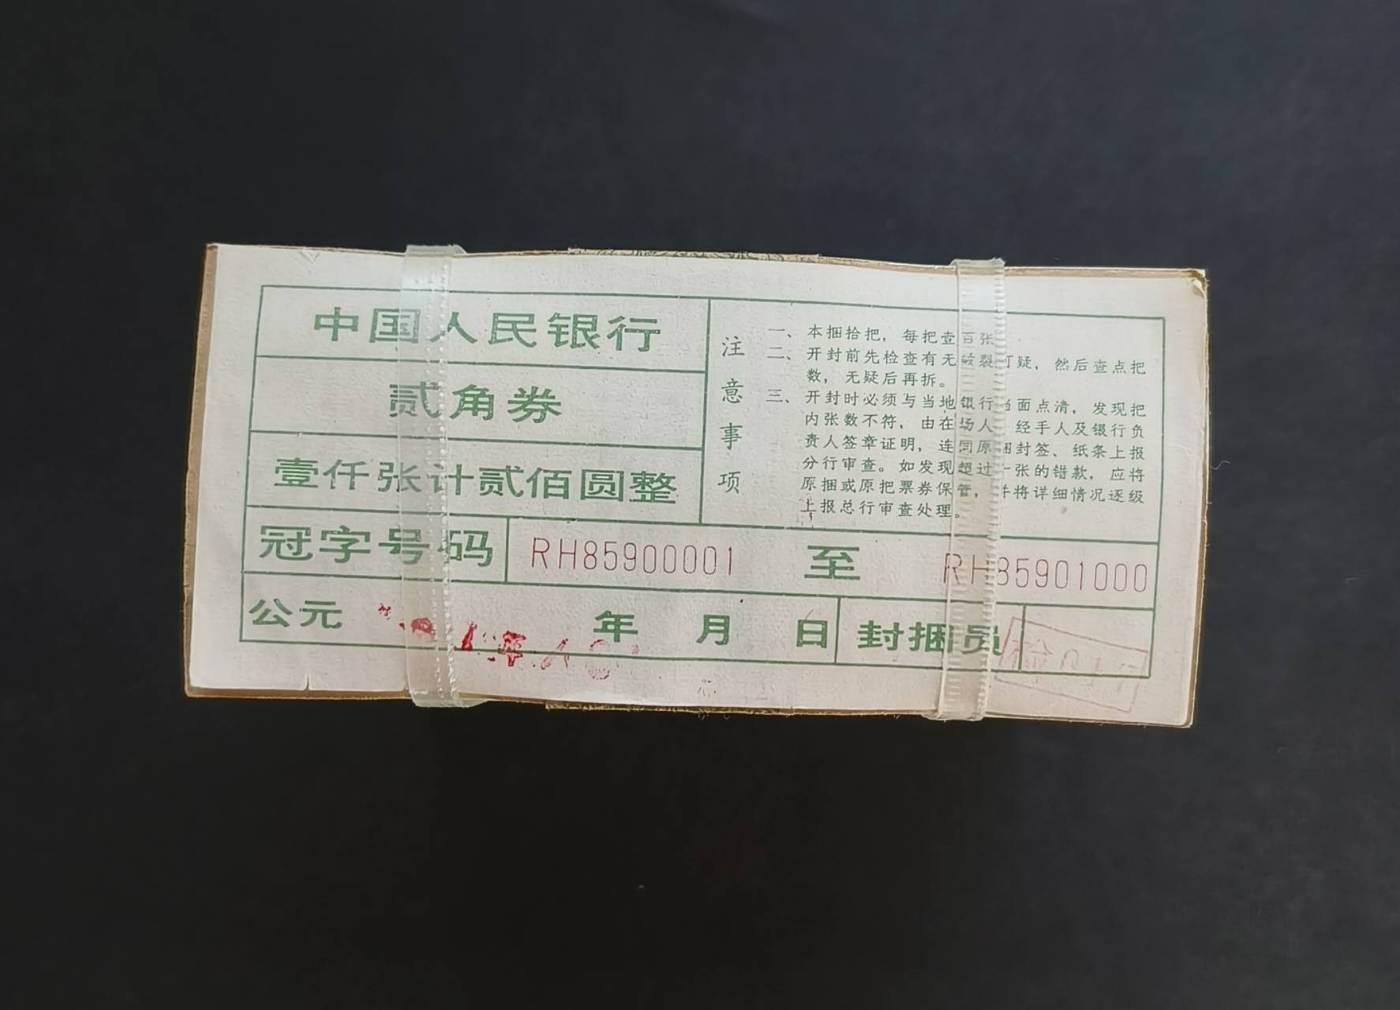 中国人民银行
贰角券
壹仟张计贰佰圆整
注意事项
一、本捆拾把，每把壹百张
二、开封前先检查有无破裂可疑，然后查点把
数，无疑后再拆。
三、开封时必须与当地银行当面点清，发现把
内张数不符，由在场人、经手人及银行负
责人签章证明，连同原捆封签、纸条上报
分行审查。如发现超过一张的错款，应将
原捆或原把票券保管，并将详细情况逐级
上报总行审查处理。
冠字号码 RH85900001 至 RH85901000
公元 年 月 日 封捆员